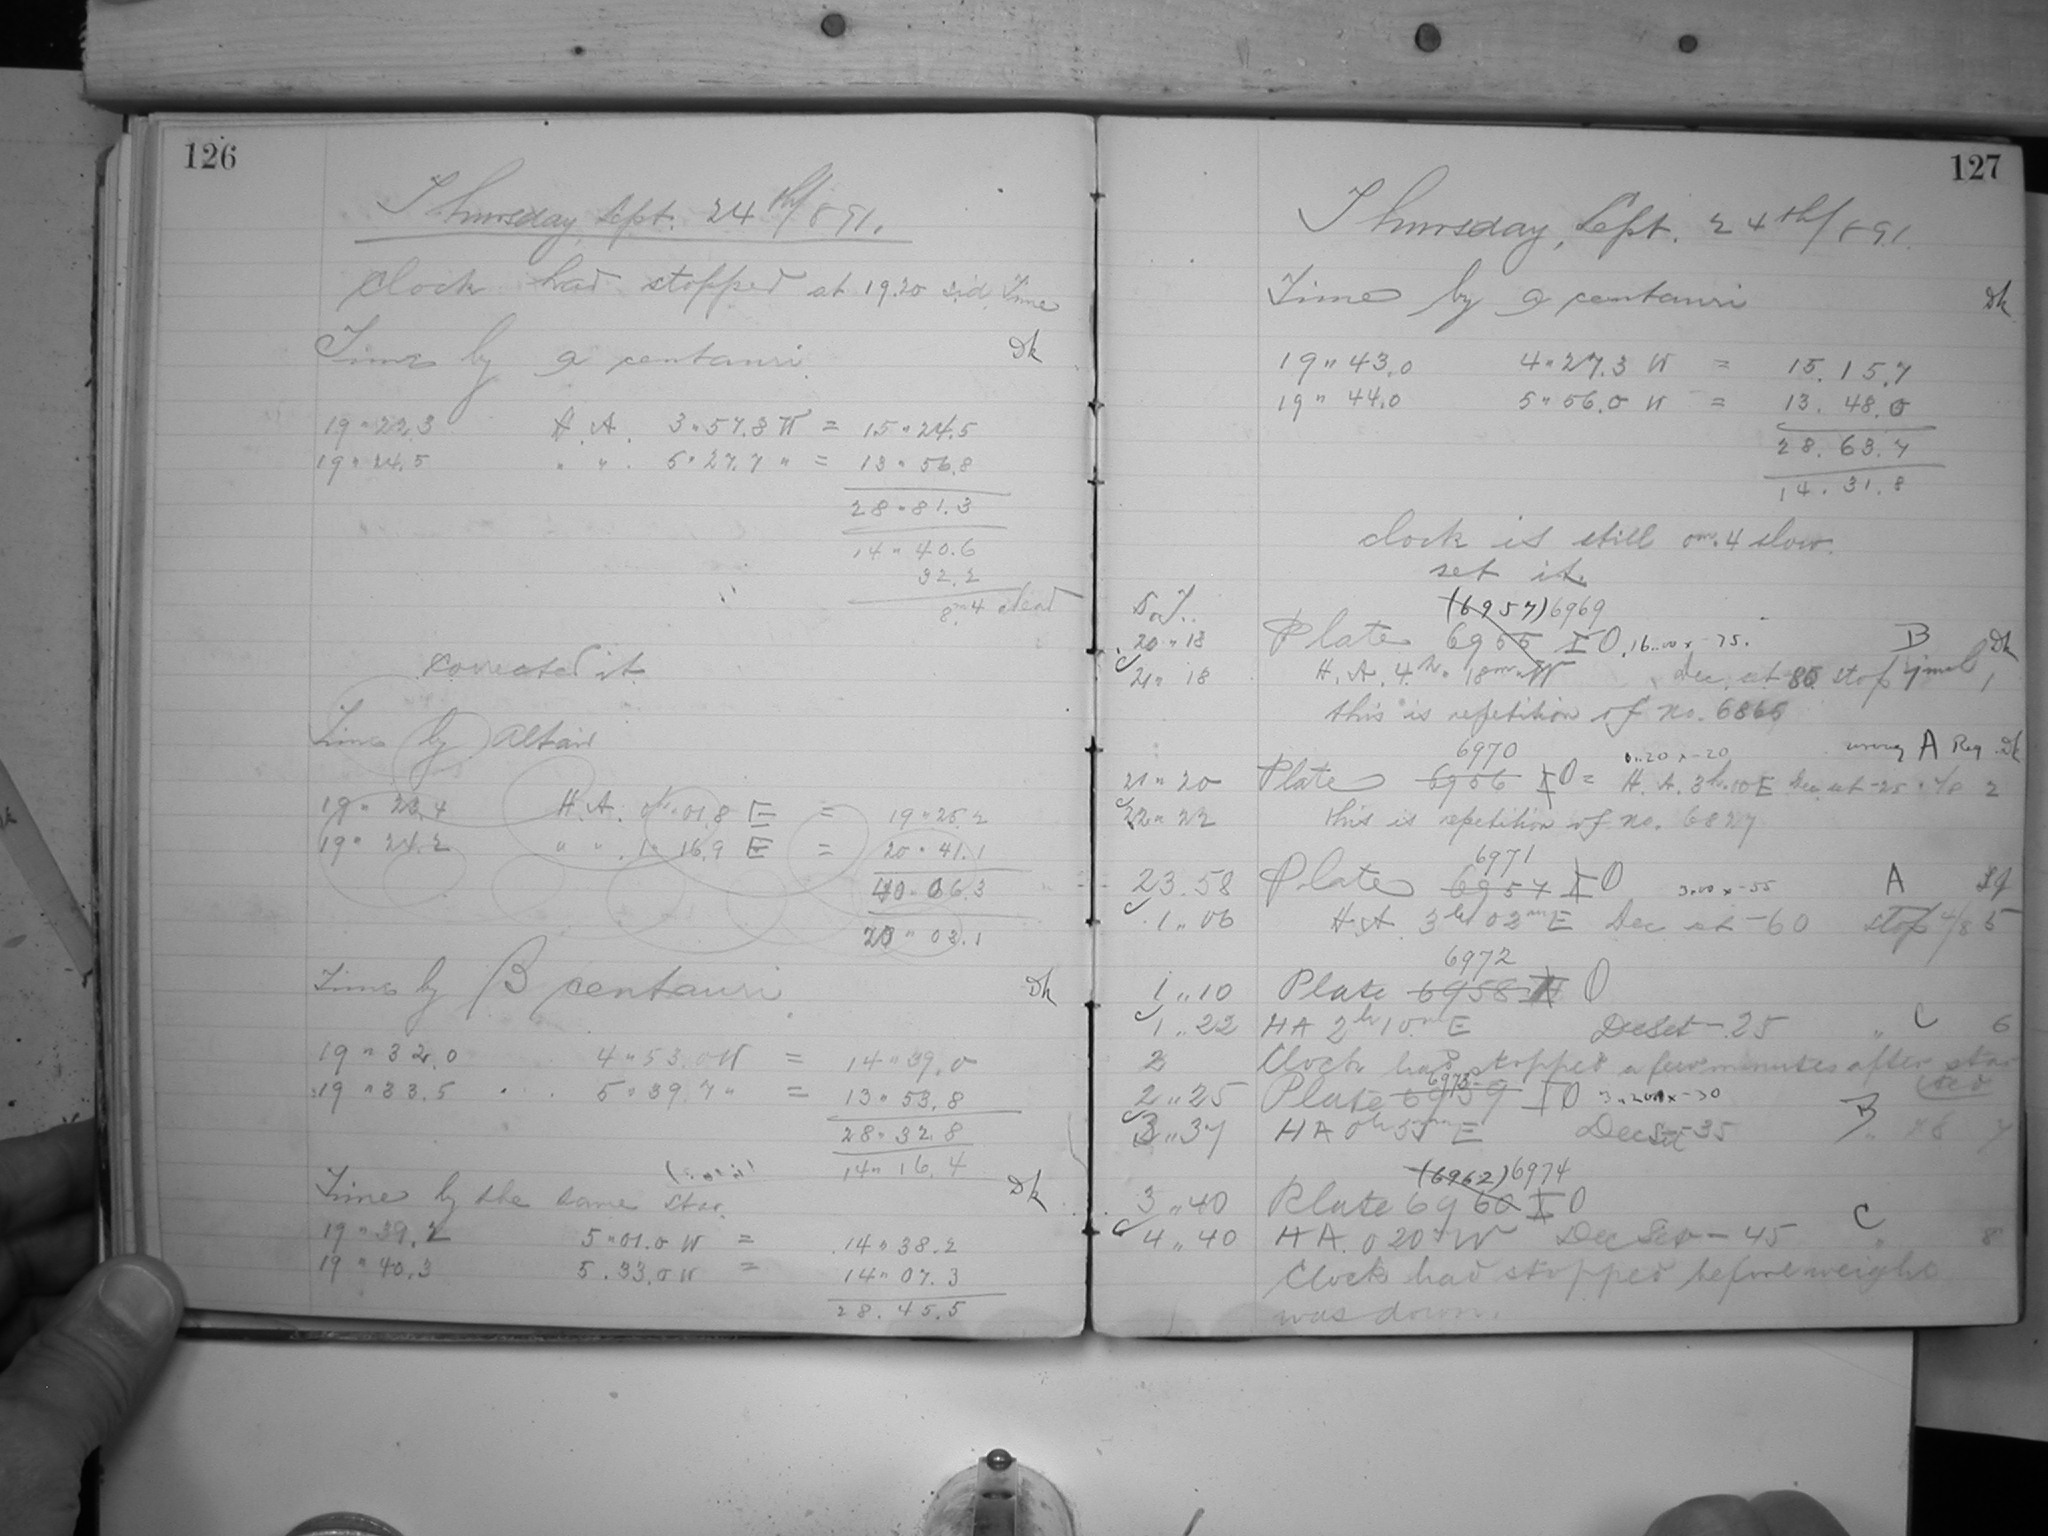 126
Thursday, Sept. 24th/891.
Clock had stopped at 19.20 sid. Time
Time by α centauri Dk
19" 22.3 H. A. 3" 57.8 W = 15" 24.5
19" 24.5 " " . 5" 27.7 " = 13" 56.8
28" 81.3
14" 40.6
32.2
8m.4
corrected it
Time by Altair
19" 23.4 H. A. 01.8 E = 19" 25.2
19" 24.2 " " . 1" 16.9 E = 20" 41.1
40" 06.3
20" 03.1
Time by β centauri Dk
19" 32.0 4" 53.0 W = 14" 39.0
19" 33.5 5" 39.7 " = 13" 53.8
28" 32.8
14" 16.4
Time by the same star. Dk
19" 39.2 5" 01.0 W = 14" 38.2
19" 40.3 5. 33.0 W = 14" 07.3
28. 45.5
127
Thursday, Sept. 24th/891.
Time by α centauri Dk
19" 43.0 4" 27.3 W = 15. 15.7
19" 44.0 5" 56.0 W = 13. 48.0
28. 63.7
14. 31.8
clock is still 0m.4 slow.
set it.
S.T. (6957) 6969
20" 18 Plate 6955 I O 16..00 x -75. B Dk
21" 18 H. A. 4h. 18m. W Dec. at 80 stop 1
this is repetition of no. 6865
6970 0..20 x -20 wrong A Reg. Dk
21" 20 Plate 6956 I O = H. A. 3h. 10 E Dec at -25 2
22" 22 this is repetition of no. 6827
6971
23.58 Plate 6957 I O 3..00 x -55 A
1" 06 H. A. 3h 02m E Dec at -60 stop 4/8 5
6972
1" 10 Plate 6958 O
1" 22 HA 2h 10m E Dec Set -25 " C 6
2 Clock had stopped a few minutes after star
ted
6973
2" 25 Plate 6959 I O 3..20 x -30 B
3" 37 HA 0h 55m E Dec Set -35 " 7
(6962) 6974
3" 40 Plate 6960 I O
4" 40 HA. 0 20 W Dec Set -45 C " 8
Clock had stopped before weight
was down.